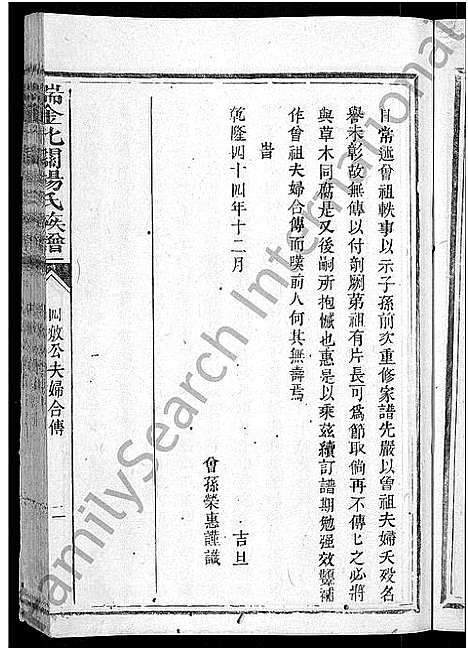 日常述曾祖軼事以示子孫前次重修家譜先嚴以曾祖夫婦夭殁名
譽未彰故無傳以付剞劂第祖有片長可為節取倘再不傳匕之必將
與草木同腐是又後嗣所抱憾也惠是以乘茲續訂譜期勉强效顰補
作曾祖夫婦合傳而嘆前人何其無壽焉
旹
乾隆四十四年十二月
吉旦
曾孫榮惠謹識
瑞金北關楊氏族譜
四敖公夫婦合傳
二
FamilySearch International